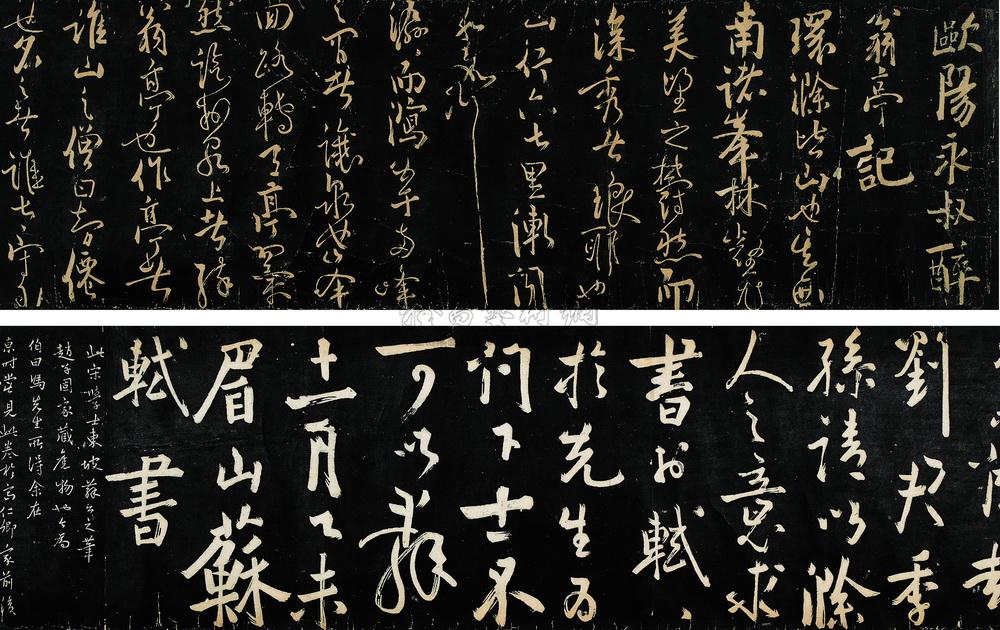 歐陽永叔醉
翁亭記
環滁皆山也其西
南諸峯林壑尤
美望之蔚然而
深秀者琅耶也
山行六七里漸聞
水聲
潺潺而瀉出于兩峰
之間者讓泉也峯
回路轉有亭翼
然臨於泉上者醉
翁亭也作亭者
誰山之僧曰智僊
也名之者誰太守自
劉君季
孫請以滁
人之意求
書於軾軾
於先生為
門下士不
可以辭
十一月乙未
眉山蘇
軾書
此宋學士東坡蘇公之筆
趙子固家藏舊物也今為
伯田馮先生所得余在
京時嘗見此卷於高仁卿家前後